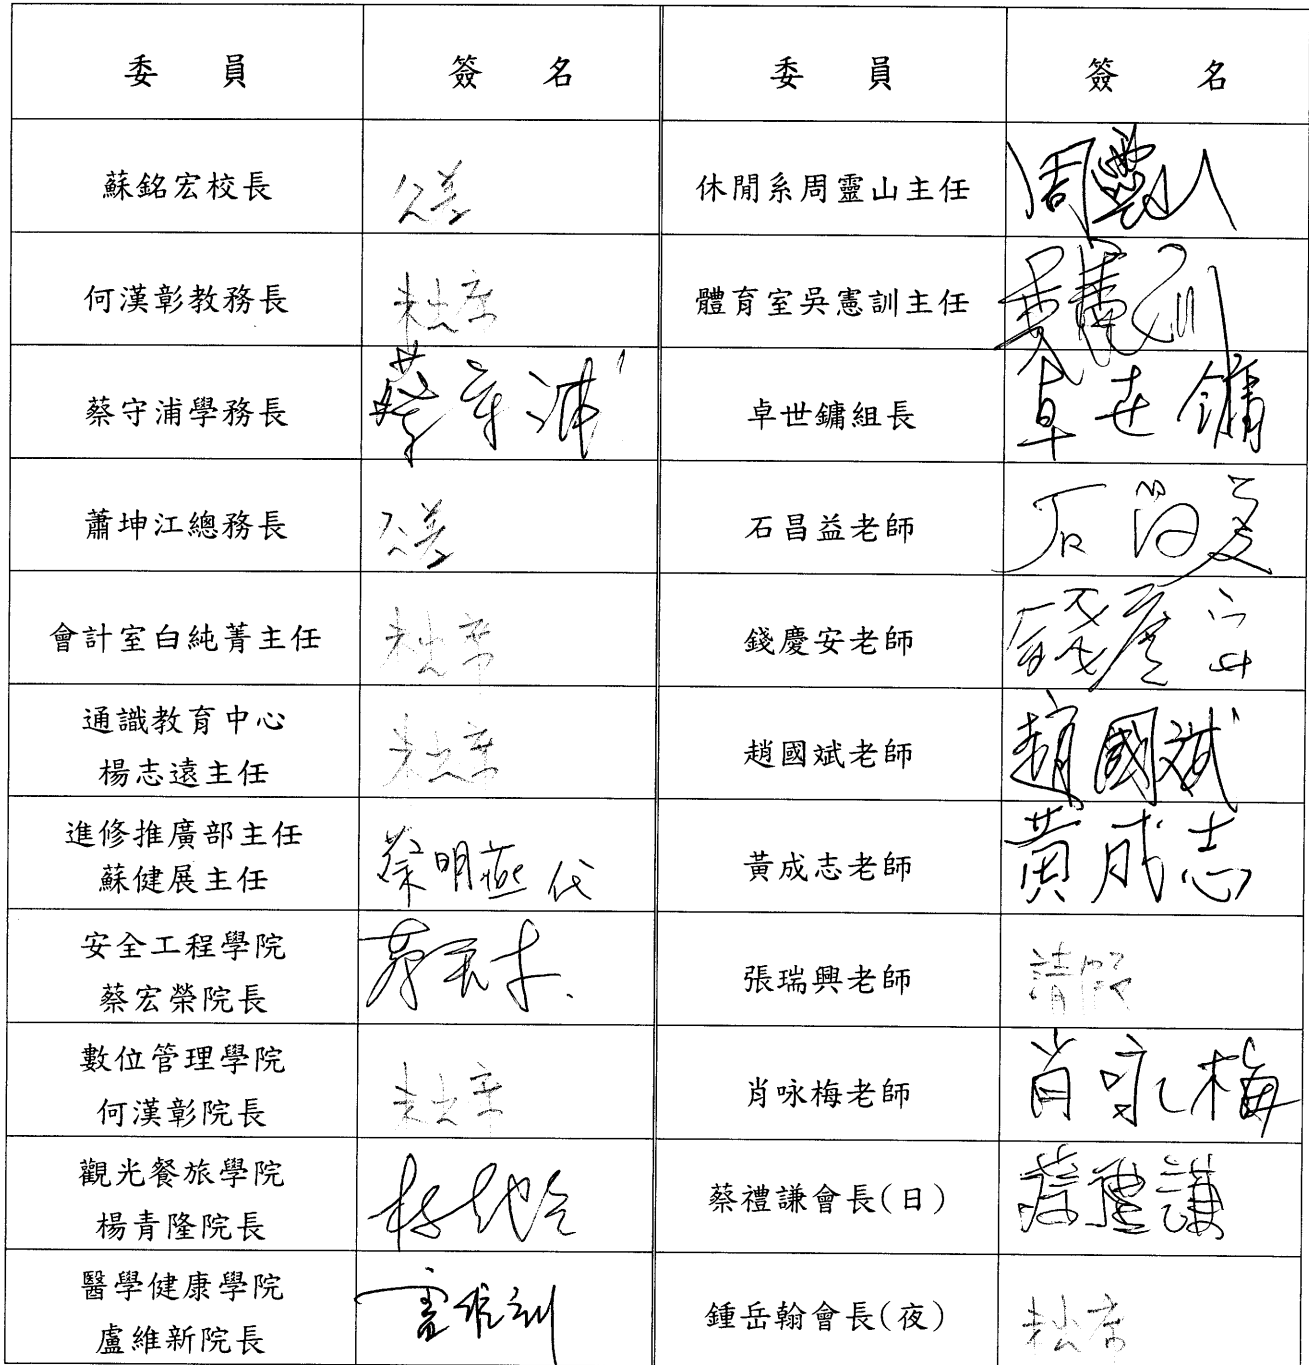 委員 簽名 委員 簽名
蘇銘宏校長 公差 休閒系周靈山主任 周靈山
何漢彰教務長 未出席 體育室吳憲訓主任 吳憲訓
蔡守浦學務長 蔡守浦 卓世鏞組長 卓世鏞
蕭坤江總務長 公差 石昌益老師
會計室白純菁主任 未出席 錢慶安老師 錢慶安
通識教育中心
楊志遠主任 未出席 趙國斌老師 趙國斌
進修推廣部主任
蘇健展主任 蔡明燕代 黃成志老師 黃成志
安全工程學院
蔡宏榮院長 張瑞興老師 請假
數位管理學院
何漢彰院長 未出席 肖咏梅老師 肖咏梅
觀光餐旅學院
楊青隆院長 蔡禮謙會長(日) 蔡禮謙
醫學健康學院
盧維新院長 鍾岳翰會長(夜) 未出席